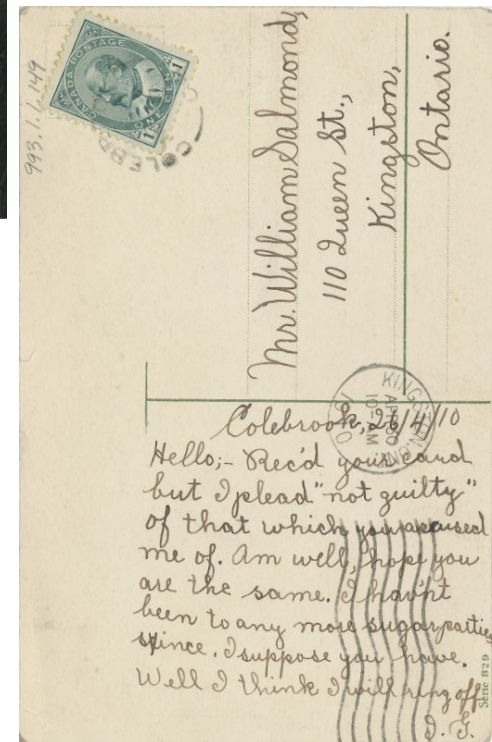 993.1.6.149
CANADA POSTAGE
ONE CENT
1 1
COLEBR
Mr. William Salmond,
110 Queen St.,
Kingston,
Ontario.
KINGSTON
AP 30
10 - AM
ONT
Colebrook, 26/4/10
Hello;- Rec'd your card
but I plead "not guilty"
of that which you accused
me of. Am well, hope you
are the same. I hav'nt
been to any more sugar parties
since. I suppose you have.
Well I think I will ring off
I. G.
Serie 829